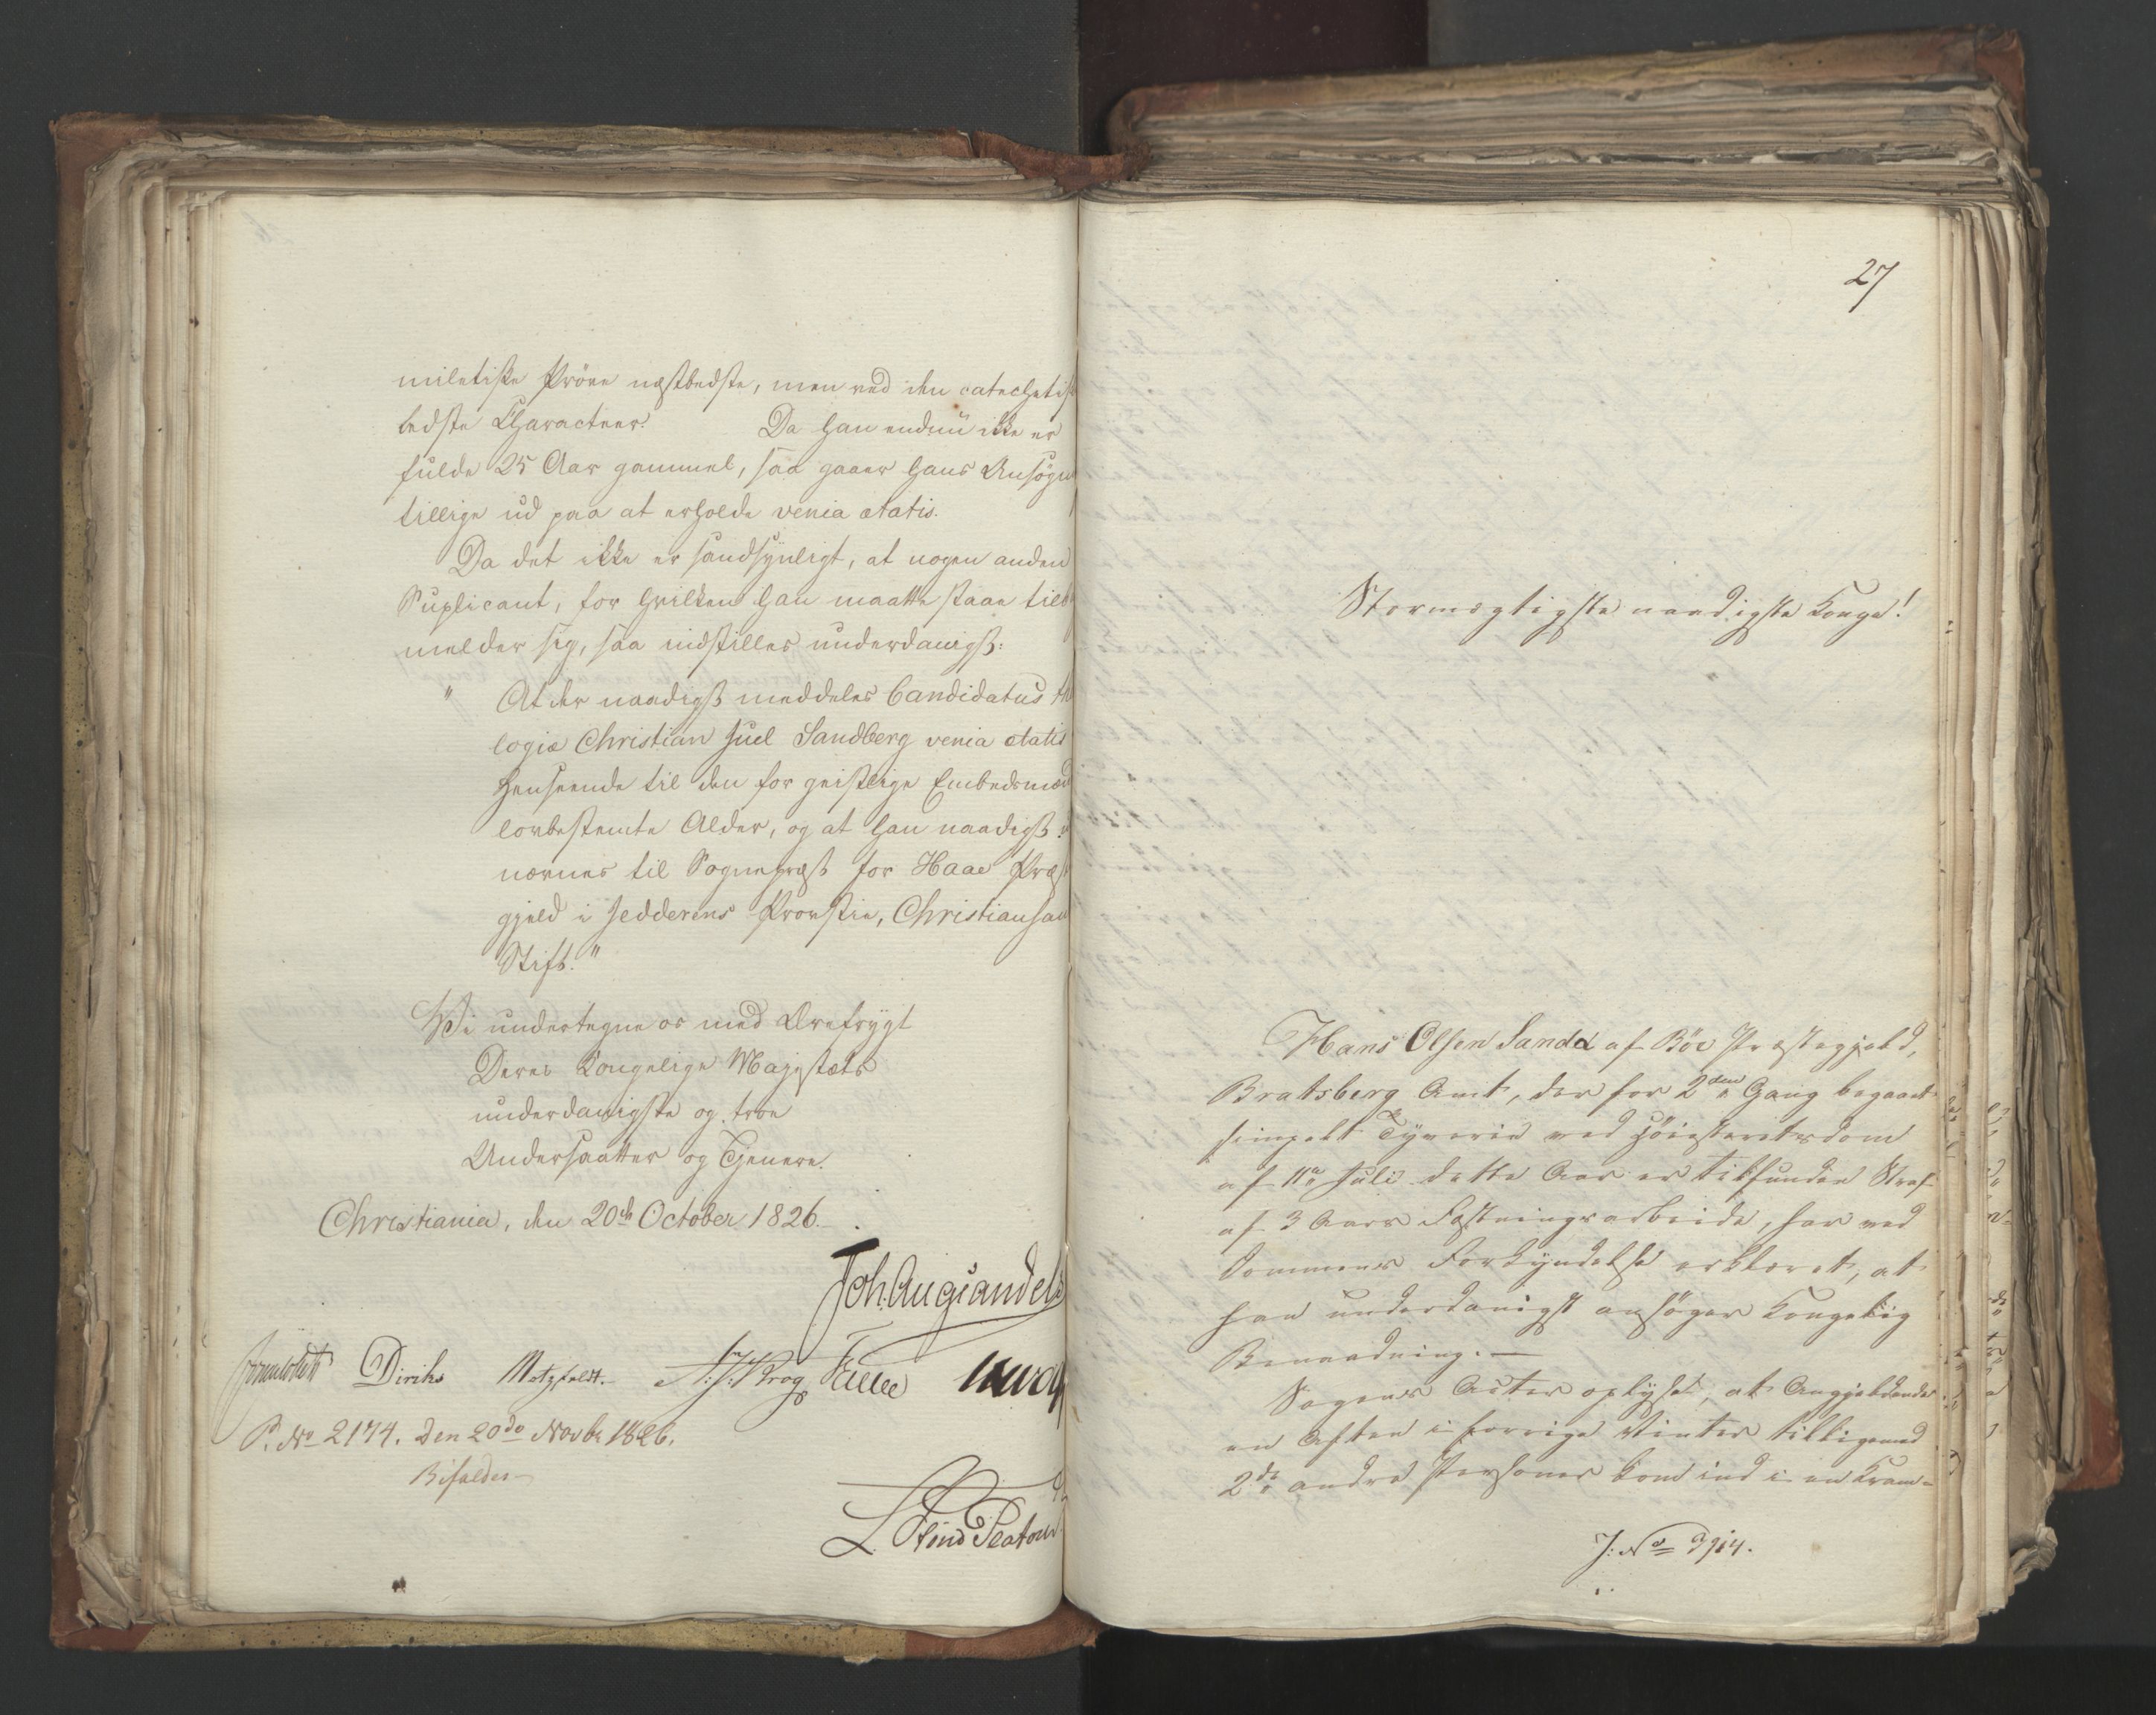 miletiske Pröve næstbedste, men ved den catechetisk
bedste Characteer. Da han endnu ikke er
fulde 25 Aar gammel, saa gaaer hans Ansögn
tillige ud paa at erholde venia ætatis.
Da det ikke er sandsynligt, at nogen anden
Suplicant, for hvilken han maatte staae tilb
melder sig, saa indstilles underdanigst:
" At der naadigst meddeles Candidatus the
logiæ Christian Juel Sandberg venia ætatis
Henseende til den for geistlige Embedsmænd
lovbestemte Alder, og at han naadigst
nævnes til Sognepræst for Haae Præst
gjeld i Jedderens Provstie, Christiansan
Stift."
Vi undertegne os med Ærefrygt
Deres Kongelige Majestæts
underdanigste og troe
Undersaatter og Tjenere.
Christiania, den 20de October 1826.
Joh. Aug. Sandels
Sommerhielm Diriks Motzfeldt. A: J: Krog Fasting
P. No 2174. Den 20de Novbr 1826.
Bifaldes
L. Flind Platou
27
Stormægtigste naadigste Konge!
Hans Olsen Sanda af Böe Præstegjeld,
Bratsberg Amt, der for 2den Gang begaaet
simpelt Tyverie ved Höiesteretsdom
af 11te Juli dette Aar er tilfunden Straf
af 3 Aars Fæstningsarbeide, har ved
Dommens Forkyndelse erklæret, at
han underdanigst ansöger Kongelig
Benaadning. —
Sagens Acter oplyse, at Angjeldende
en Aften i forrige Vinter tilligemed
2de andre Personer kom ind i en Kram-
J: No 3914.